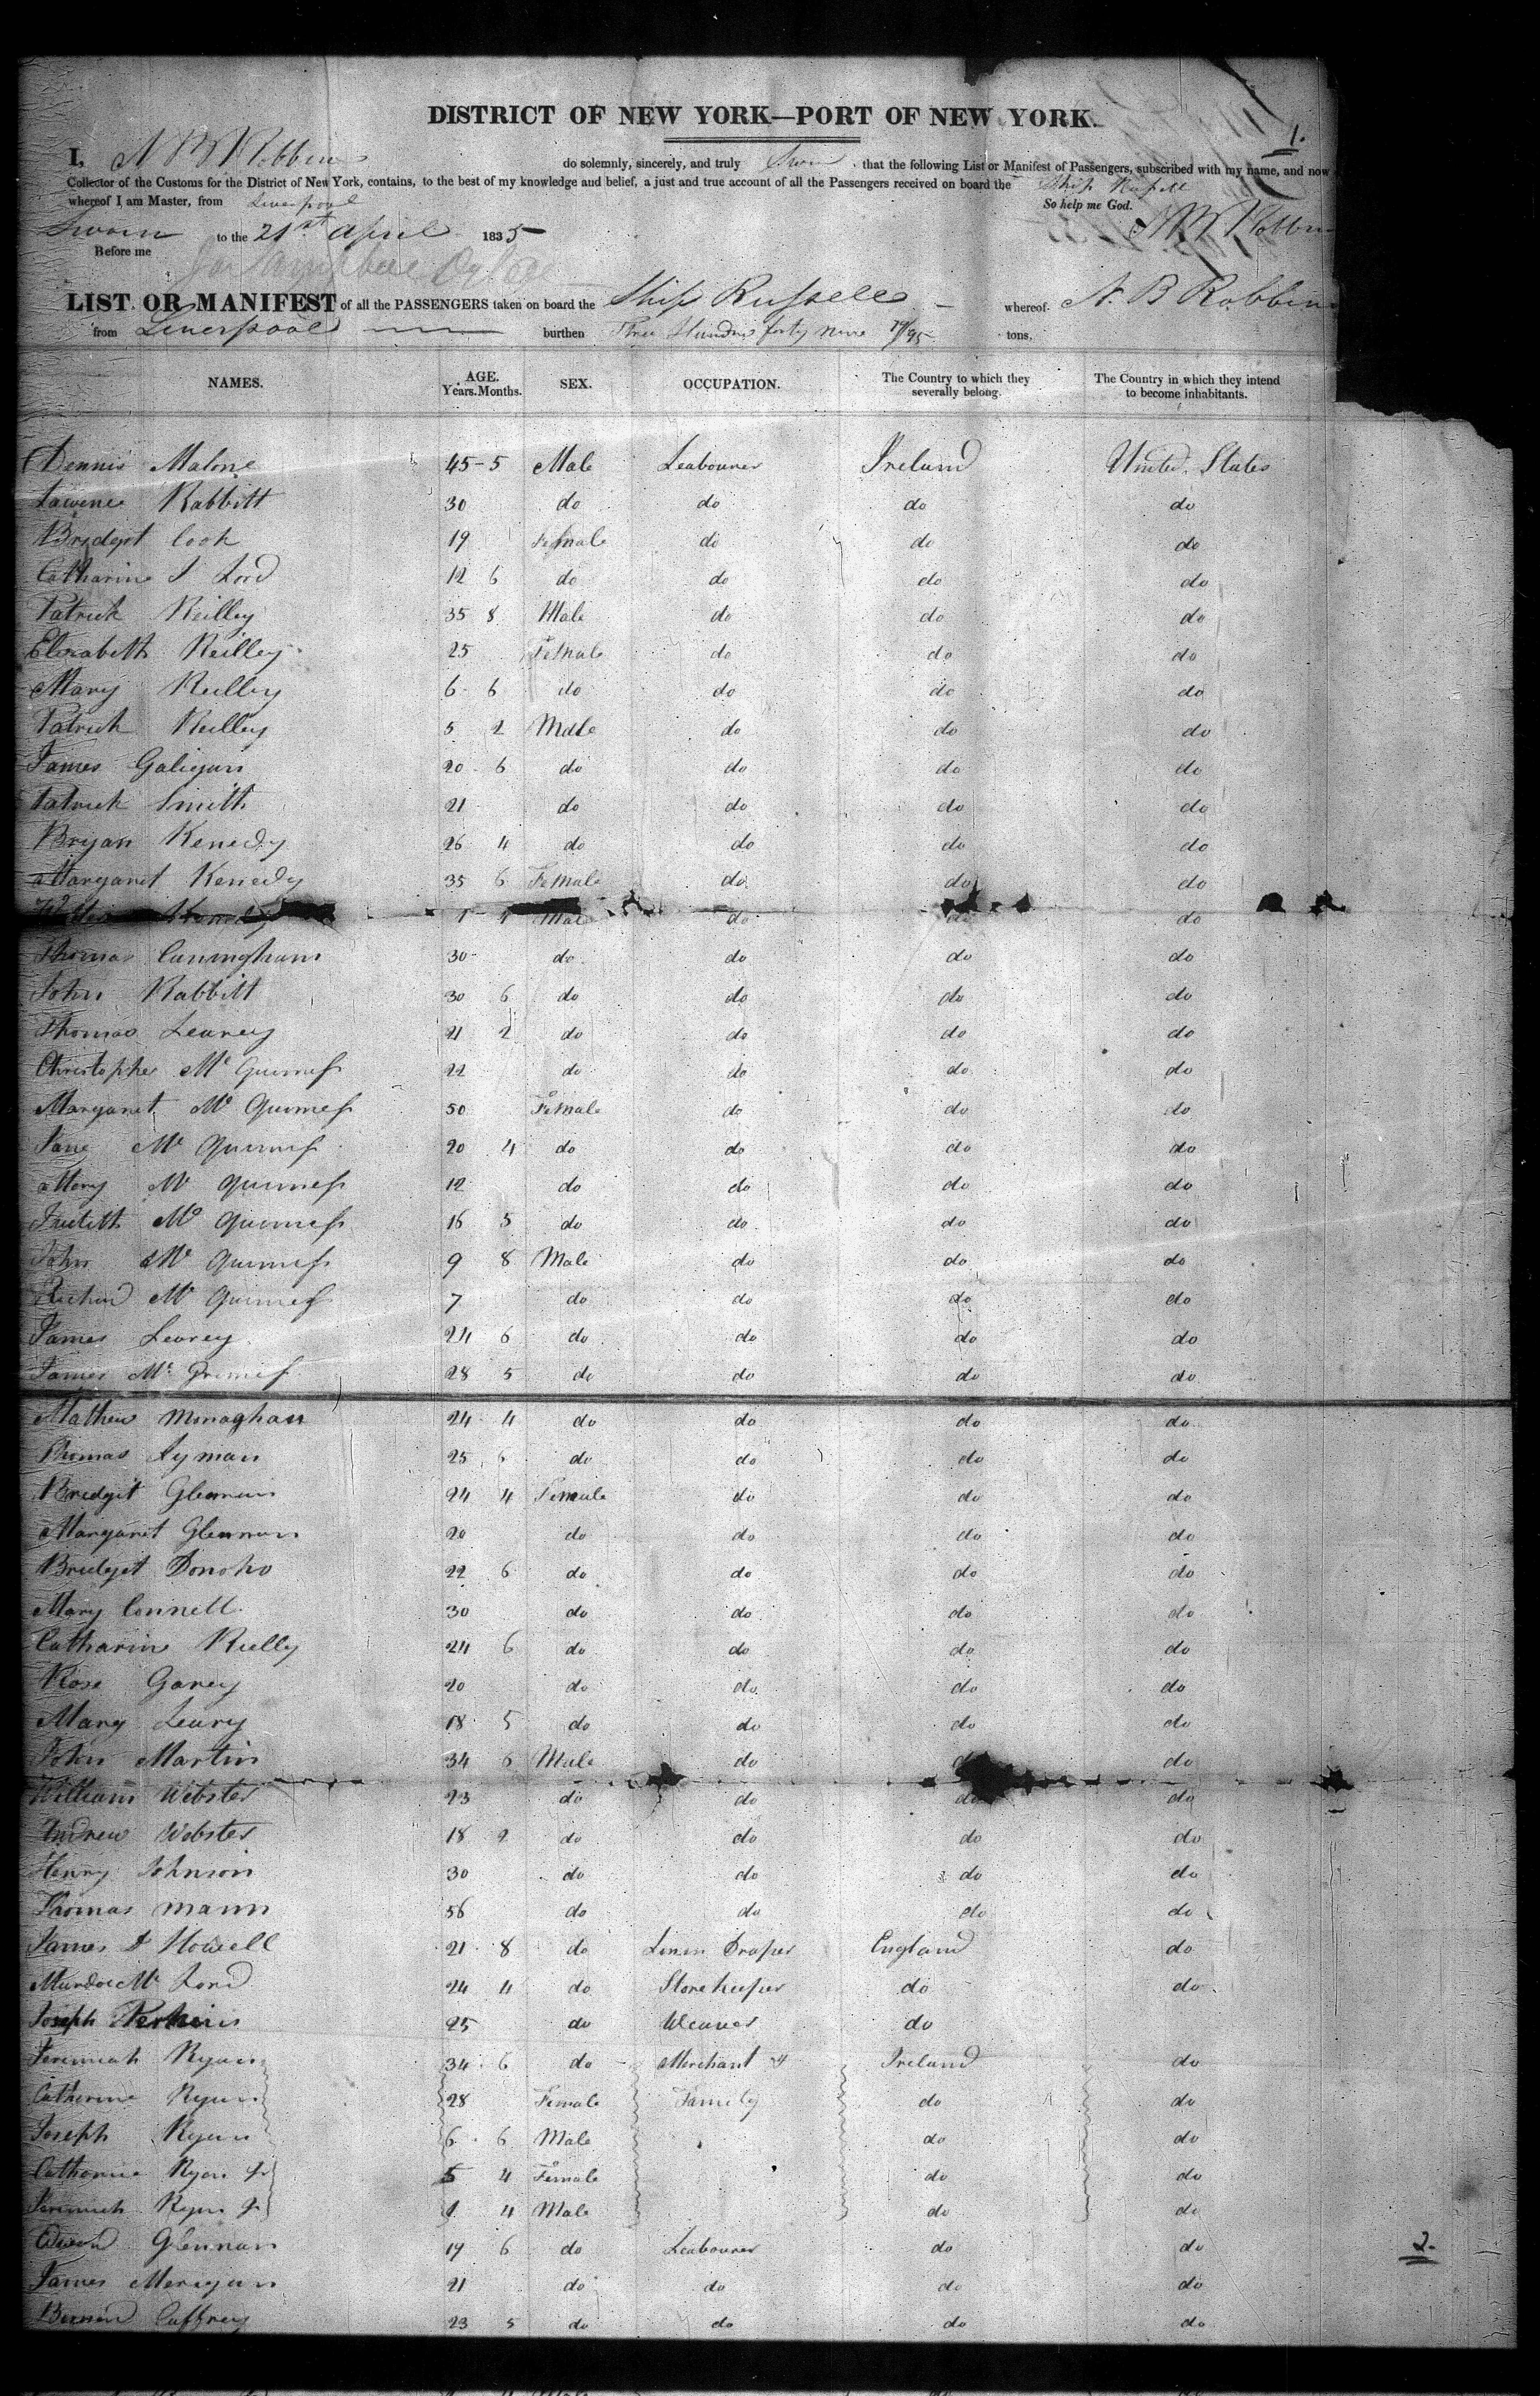 DISTRICT OF NEW YORK—PORT OF NEW YORK.
1.
I, N B Robbins do solemnly, sincerely, and truly Swear, that the following List or Manifest of Passengers, subscribed with my name, and now
Collector of the Customs for the District of New York, contains, to the best of my knowledge and belief, a just and true account of all the Passengers received on board the Ship Russell
whereof I am Master, from Liverpool So help me God.
Sworn to the 21st April 1835 N B Robbin
Before me
LIST OR MANIFEST of all the PASSENGERS taken on board the Ship Russell whereof N. B Robbin
from Liverpool burthen Three Hundred forty nine /95 tons,
NAMES. AGE. Years. Months. SEX. OCCUPATION. The Country to which they severally belong. The Country in which they intend to become inhabitants.
Dennis Malone 45-5 Male Leabourer Ireland United States
Lawence Rabbitt 30 do do do do
Bridget Cook 19 Female do do do
Catharine J Lord 12 6 do do do do
Patrick Reilley 35 8 Male do do do
Elizabeth Reilley 25 Female do do do
Mary Reilley 6 6 do do do do
Patrick Reilley 5 2 Male do do do
James Galigan 20 6 do do do do
Patrick Smith 21 do do do do
Bryan Kenedy 26 4 do do do do
Margaret Kenedy 35 6 Female do do do
Kenedy 1 4 Male do do do
Thomas Cuningham 30 do do do do
John Rabbitt 30 6 do do do do
Thomas Learey 21 2 do do do do
Christopher Mc Guiness 22 do do do do
Margaret Mc Guiness 50 Female do do do
Jane Mc Guiness 20 4 do do do do
Mary Mc Guiness 12 do do do do
Mc Guiness 16 5 do do do do
John Mc Guiness 9 8 Male do do do
Richard Mc Guiness 7 do do do do
James Learey 24 6 do do do do
James Mc Guiness 28 5 do do do do
Mathew Monaghan 24 4 do do do do
Thomas Lyman 25 6 do do do do
Bridgit Glennan 24 4 Female do do do
Margaret Glennan 20 do do do do
Bridget Donoho 22 6 do do do do
Mary Connell 30 do do do do
Catharine Reilly 24 6 do do do do
Rose Garey 20 do do do do
Mary Leary 18 5 do do do do
John Martin 34 6 Male do do do
William Webster 23 do do do do
Andrew Webster 18 2 do do do do
Henry Johnson 30 do do do do
Thomas Mann 56 do do do do
James D Howell 21 8 do Linen Draper England do
Murdoc Mc Lord 24 4 do Storekeeper do do
Joseph Perkins 25 do Weaver do
Jeremiah Ryan 34 6 do Merchant & Ireland do
Catherine Ryan 28 Female Family do do
Joseph Ryan 6 6 Male do do
Catherine Ryan Jr 5 4 Female do do
Jeremiah Ryan Jr 1 4 Male do do
Edward Glennan 19 6 do Leabourer do do
2.
James Merigan 21 do do do do
Bernard Caffrey 23 5 do do do do